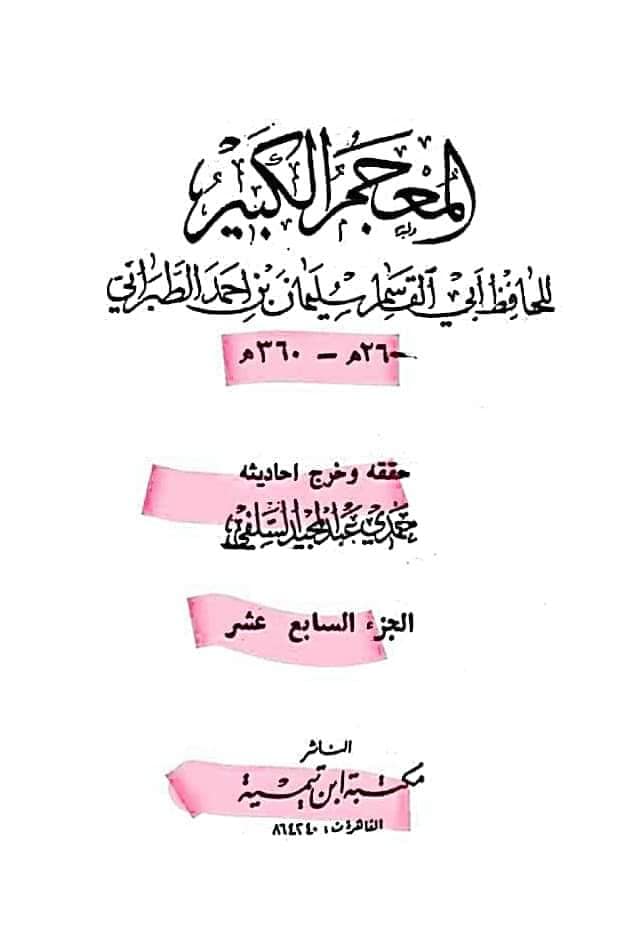 المُعْجَمُ الكَبِيْرُ
للحَافِظ أَبي القَاسِم سُلِيمَان بْن احمَد الطَّبرَاني
٢٦٠هـ — ٣٦٠هـ
حققه وخرج احاديثه
حمدي عَبْد المجيد السَّلفي
الجزء السابع عشر
الناشر
مكتبة ابن تيمية
القاهرة ت: ٨٦٤٢٤٠